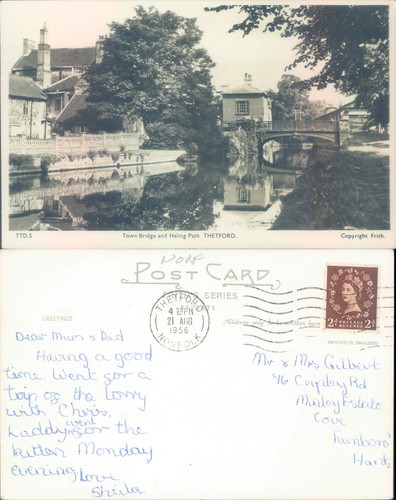 TTD.5 Town Bridge and Haling Path. THETFORD. Copyright Frith.
NORF
POST CARD
SERIES
GREETINGS
THETFORD
4 PM
21 AUG
1956
NORFOLK
Address only to be written here
2D POSTAGE REVENUE 2D
PRINTED IN ENGLAND
Dear Mum & Dad
Having a good
time. Went for a
trip on the lorry
with Chris.
Laddy went for the
kitten Monday
evening. Love
Sheila
Mr & Mrs Gilbert
46 Cripley Rd
Estate
Cove
Farnboro'
Hants